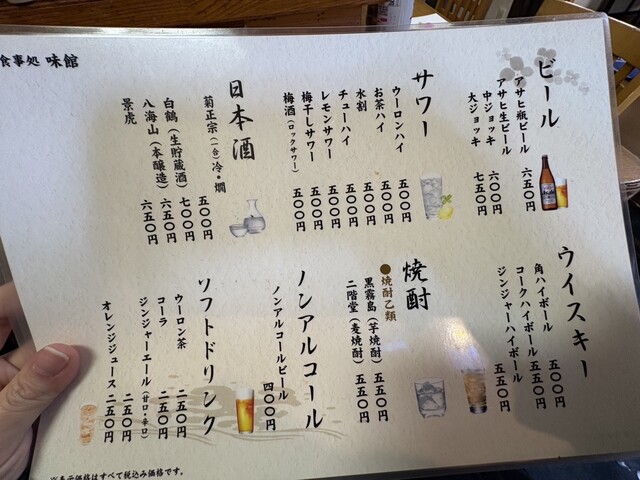 食事処 味館
ビール
アサヒ瓶ビール 六五〇円
アサヒ生ビール
中ジョッキ 六〇〇円
大ジョッキ 七五〇円
サワー
ウーロンハイ 五〇〇円
お茶ハイ 五〇〇円
水割 五〇〇円
チューハイ 五〇〇円
レモンサワー 五〇〇円
梅干しサワー 五〇〇円
梅酒(ロックサワー) 五〇〇円
日本酒
菊正宗(一合)冷・燗 五〇〇円
白鶴(生貯蔵酒) 七〇〇円
八海山(本醸造) 六五〇円
景虎 六五〇円
ウイスキー
角ハイボール 五〇〇円
コークハイボール 五五〇円
ジンジャーハイボール 五五〇円
焼酎
●焼酎乙類
黒霧島(芋焼酎) 五五〇円
二階堂(麦焼酎) 五五〇円
ノンアルコール
ノンアルコールビール 四〇〇円
ソフトドリンク
ウーロン茶 二五〇円
コーラ 二五〇円
ジンジャーエール(甘口・辛口) 二五〇円
オレンジジュース 二五〇円
※表示価格はすべて税込み価格です。